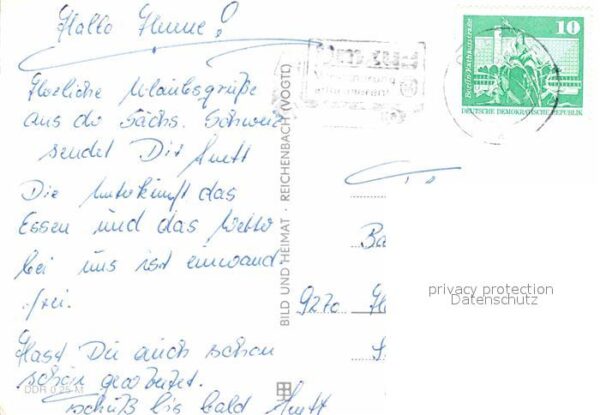 Hallo
Herzliche Urlaubsgrüße
aus der Sächs. Schweiz
sendet Dir Anett
Die Unterkunft das
Essen und das Wetter
bei uns ist einwand-
frei.
Hast Du auch schon
schön gearbeitet.
schüß bis bald Anett
DDR 0,25 M
BILD UND HEIMAT · REICHENBACH (VOGTL)
10
Berlin, Rathausstraße
DEUTSCHE DEMOKRATISCHE REPUBLIK
Ba
9270
privacy protection
Datenschutz